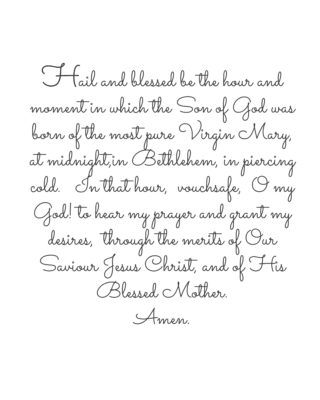 Hail and blessed be the hour and
moment in which the Son of God was
born of the most pure Virgin Mary,
at midnight,in Bethlehem, in piercing
cold. In that hour, vouchsafe, O my
God! to hear my prayer and grant my
desires, through the merits of Our
Saviour Jesus Christ, and of His
Blessed Mother.
Amen.